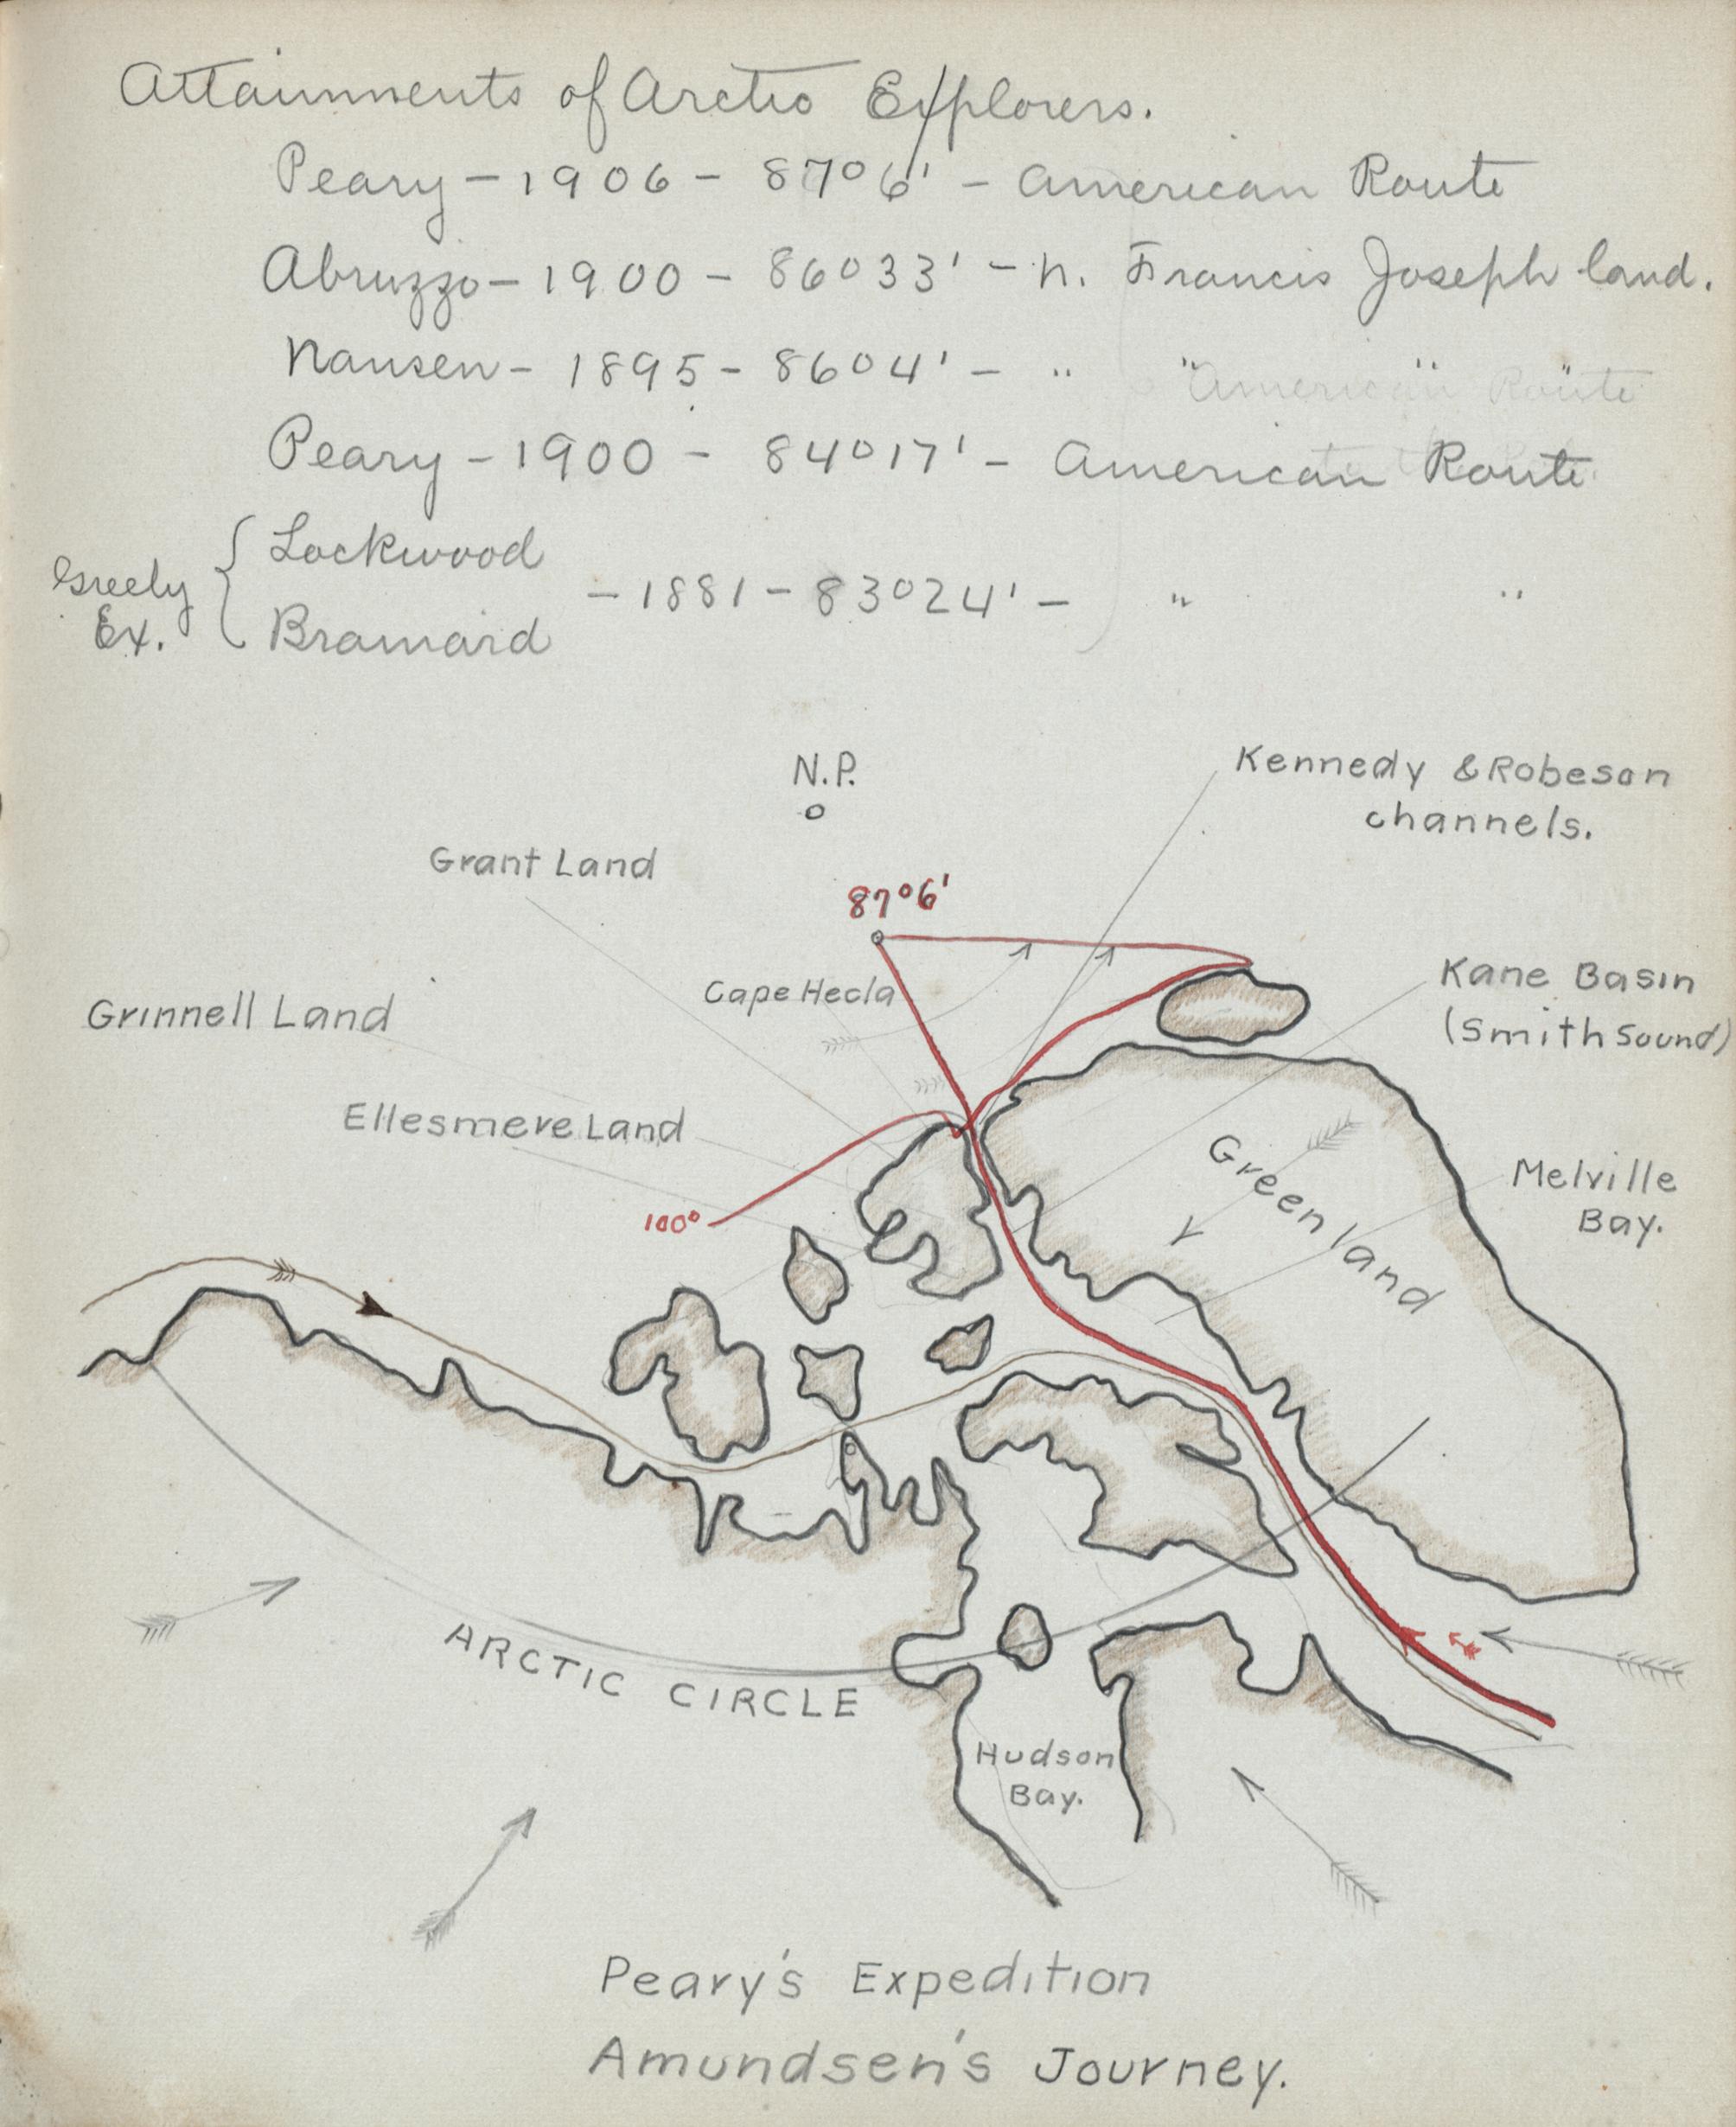 Attainments of Arctic Explorers.
Peary - 1906 - 87°6' - American Route
Abruzzo - 1900 - 86°33' - N. Francis Joseph land.
Nansen - 1895 - 86°4' - " " " "
American Route
Peary - 1900 - 84°17' - American Route
Greely Ex. { Lockwood
Brainard - 1881 - 83°24' - " "
N.P.
Kennedy & Robeson
channels.
Grant Land
87°6'
Cape Hecla
Kane Basin
(Smith Sound)
Grinnell Land
Ellesmere Land
Greenland
Melville
Bay.
100°
ARCTIC CIRCLE
Hudson
Bay.
Peary's Expedition
Amundsen's Journey.